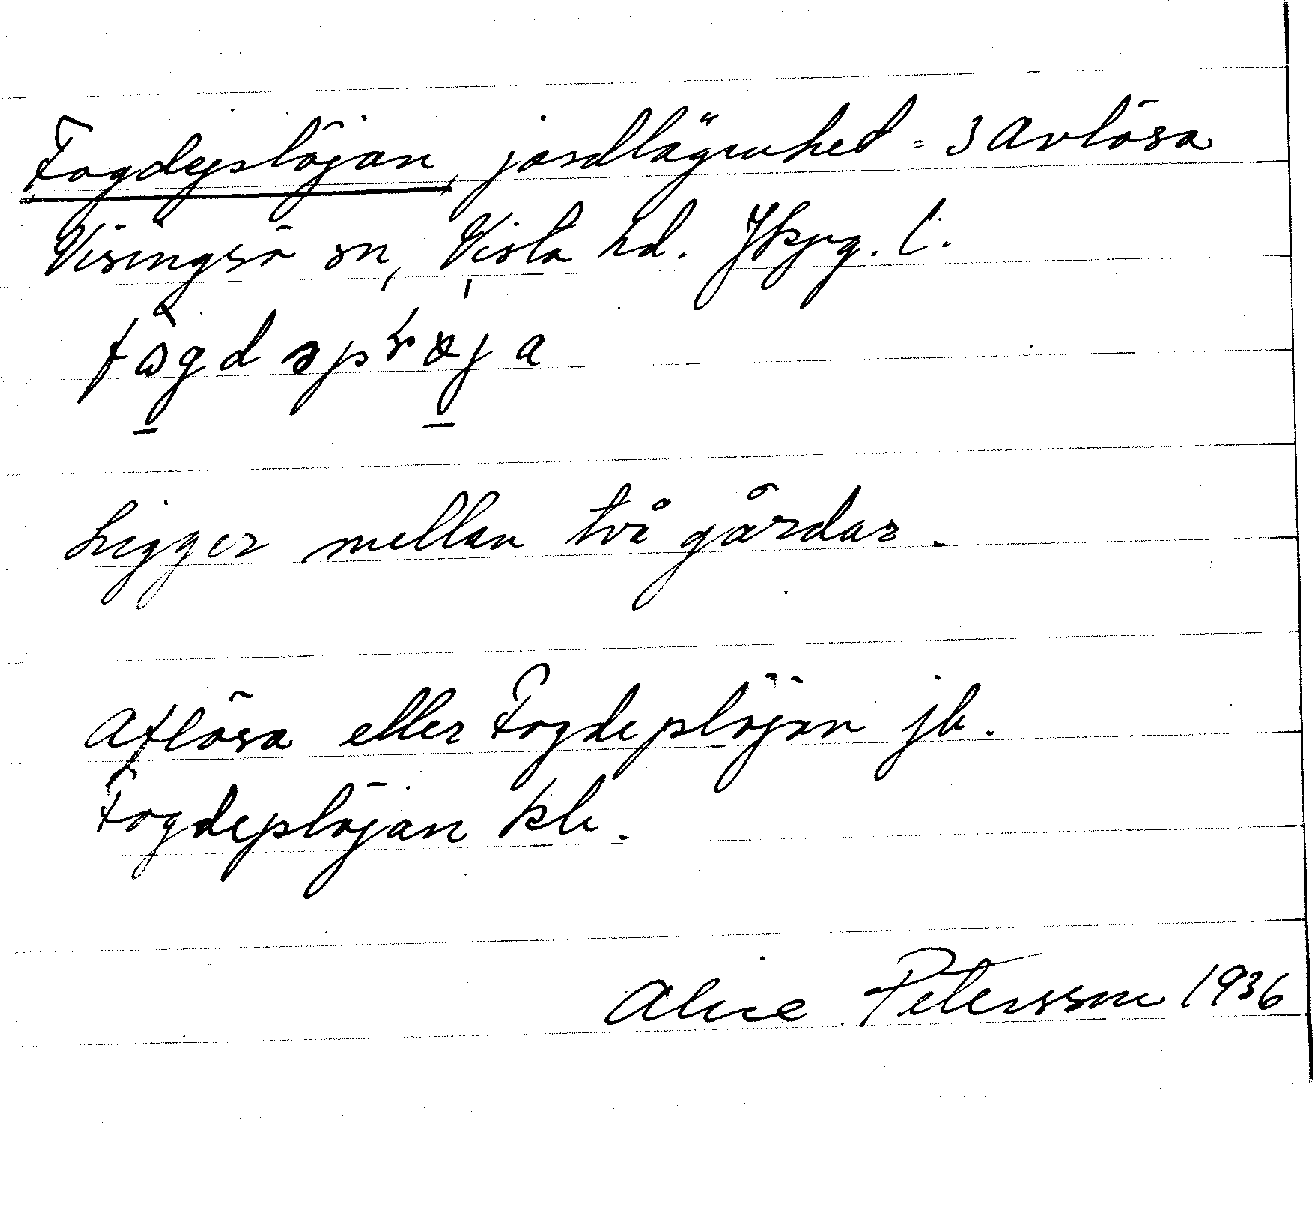 Fogdeplöjan, jordlägenhed = 3 Avlösa
Visingsö sn, Vista hd. Jkpg. l.
Ligger mellan två gårdar.
Aflösa eller Fogdeplöjan jb.
Fogdeplöjan kb.
Alice Petersson 1936